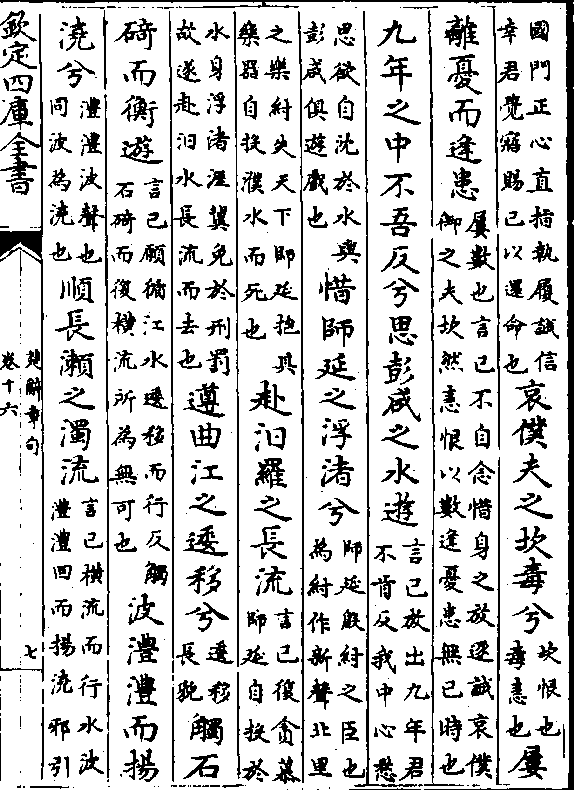 國門正心直指執履誠信
幸君覺寤賜已以還命也哀僕夫之坎毒兮坎恨也
毒恚也屢
離憂而逢患屢數也言已不自念惜身之放逐誠哀僕
御之夫坎然恚恨以數逢憂患無已時也
九年之中不吾反兮思彭咸之水遊言已放出九年君
不肯反我中心愁
思欲自沈於水與
彭咸俱遊戲也惜師延之浮渚兮師延殷紂之臣也
為紂作新聲北里
之樂紂失天下師延抱其
樂器自投濮水而死也赴汨羅之長流言已復貪慕
師延自投於
水身浮渚涯冀免於刑罰
故遂赴汨水長流而去也遵曲江之逶移兮逶移
長貌觸石
碕而衡遊言已願循江水逶移而行反觸
石碕而復橫流所為無可也波澧澧而揚
澆兮澧澧波聲也
回波為澆也順長瀨之濁流言已橫流而行水波
澧澧回而揚澆邪引
欽定四庫全書
楚辭章句
卷十六
七